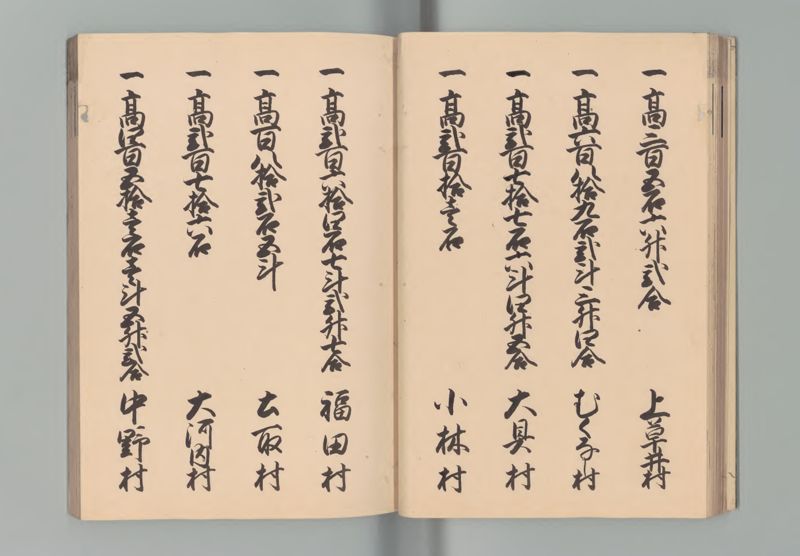 一高三百五石六斗弐合　上草井村
一高六百八拾九石弐斗三升四合　むくなし村
一高弐百七拾七石六斗四升五合　大具村
一高弐百拾壱石　小林村
一高弐百六拾四石七斗弐升七合　福田村
一高百八拾弐石五斗　土取村
一高弐百七拾六石　大河内村
一高四百五拾壱石壱斗五升弐合　中野村